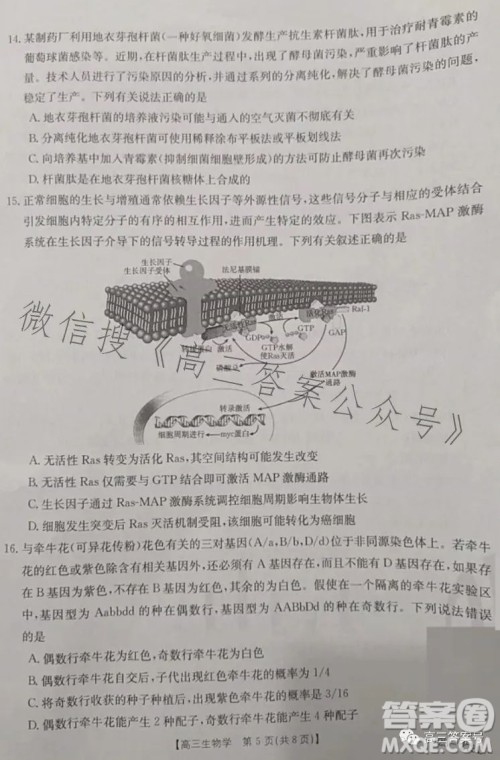 14. 某制药厂利用地衣芽孢杆菌(一种好氧细菌)发酵生产抗生素杆菌肽,用于治疗耐青霉素的
葡萄球菌感染等。近期,在杆菌肽生产过程中,出现了酵母菌污染,严重影响了杆菌肽的产
量。技术人员进行了污染原因的分析,并通过系列的分离纯化,解决了酵母菌污染的问题,
稳定了生产。下列有关说法正确的是
A. 地衣芽孢杆菌的培养液污染可能与通入的空气灭菌不彻底有关
B. 分离纯化地衣芽孢杆菌可使用稀释涂布平板法或平板划线法
C. 向培养基中加入青霉素(抑制细菌细胞壁形成)的方法可防止酵母菌再次污染
D. 杆菌肽是在地衣芽孢杆菌核糖体上合成的
15. 正常细胞的生长与增殖通常依赖生长因子等外源性信号,这些信号分子与相应的受体结合
引发细胞内特定分子的有序的相互作用,进而产生特定的效应。下图表示 Ras-MAP 激酶
系统在生长因子介导下的信号转导过程的作用机理。下列有关叙述正确的是
生长因子
生长因子受体
法尼基膜锚
无活性Ras
活化Ras
Raf-1
转接蛋白
激活
GDP
GTP
GTP水解
使Ras灭活
GTP
GAP
磷酸基
激活MAP激酶
通路
转录激活
细胞周期进行
myc蛋白
A. 无活性 Ras 转变为活化 Ras,其空间结构可能发生改变
B. 无活性 Ras 仅需要与 GTP 结合即可激活 MAP 激酶通路
C. 生长因子通过 Ras-MAP 激酶系统调控细胞周期可能会影响细胞增殖
D. 细胞发生突变后 Ras 灭活机制受阻,该细胞可能转化为癌细胞
16. 与牵牛花(可异花传粉)花色有关的三对基因(A/a,B/b,D/d)位于非同源染色体上。若牵牛
花的红色或紫色除含有相关基因外,还必须有 A 基因存在,而且不能有 D 基因存在,如果存
在 B 基因为紫色,不存在 B 基因为红色,其余的为白色。假使在一个隔离的牵牛花实验区
中,基因型为 Aabbdd 的种在偶数行,基因型为 AABbDd 的种在奇数行。下列说法错误
的是
A. 偶数行牵牛花为红色,奇数行牵牛花为白色
B. 偶数行牵牛花自交后,子代出现红色牵牛花的概率为 1/4
C. 将奇数行收获的种子种植后,出现紫色牵牛花的概率是 3/16
D. 偶数行牵牛花能产生 2 种配子,奇数行牵牛花能产生 4 种配子
【高三生物学 第 5 页(共 8 页)】
微信搜《高三答案公众号》
答案圈
MXQE.COM
高三答案号